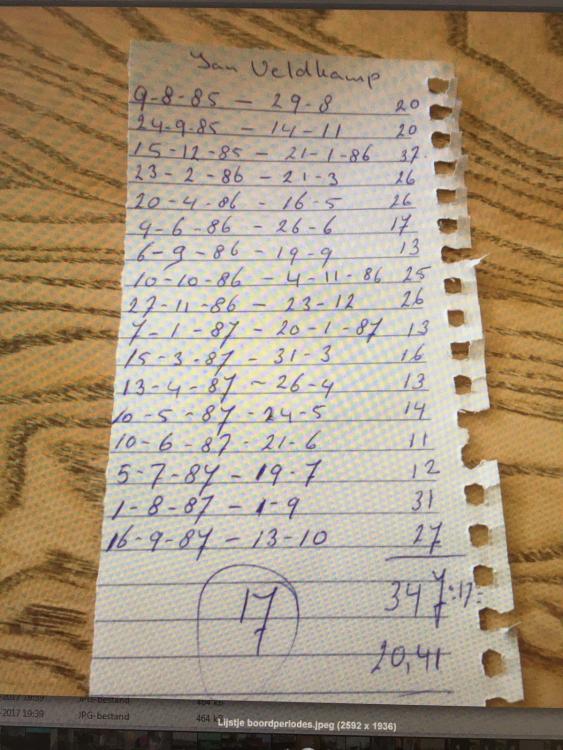 Jan Veldkamp
9-8-85 – 29-8 20
24-9-85 – 14-11 20
15-12-85 – 21-1-86 37
23-2-86 – 21-3 26
20-4-86 – 16-5 26
9-6-86 – 26-6 17
6-9-86 – 19-9 13
10-10-86 – 4-11-86 25
27-11-86 – 23-12 26
7-1-87 – 20-1-87 13
15-3-87 – 31-3 16
13-4-87 – 26-4 13
10-5-87 – 24-5 14
10-6-87 – 21-6 11
5-7-87 – 19-7 12
1-8-87 – 1-9 31
16-9-87 – 13-10 27
17
347:17=
20,41
-2017 19:39 JPG-bestand 464 kB
Lijstje boordperiodes.jpeg (2592 x 1936)